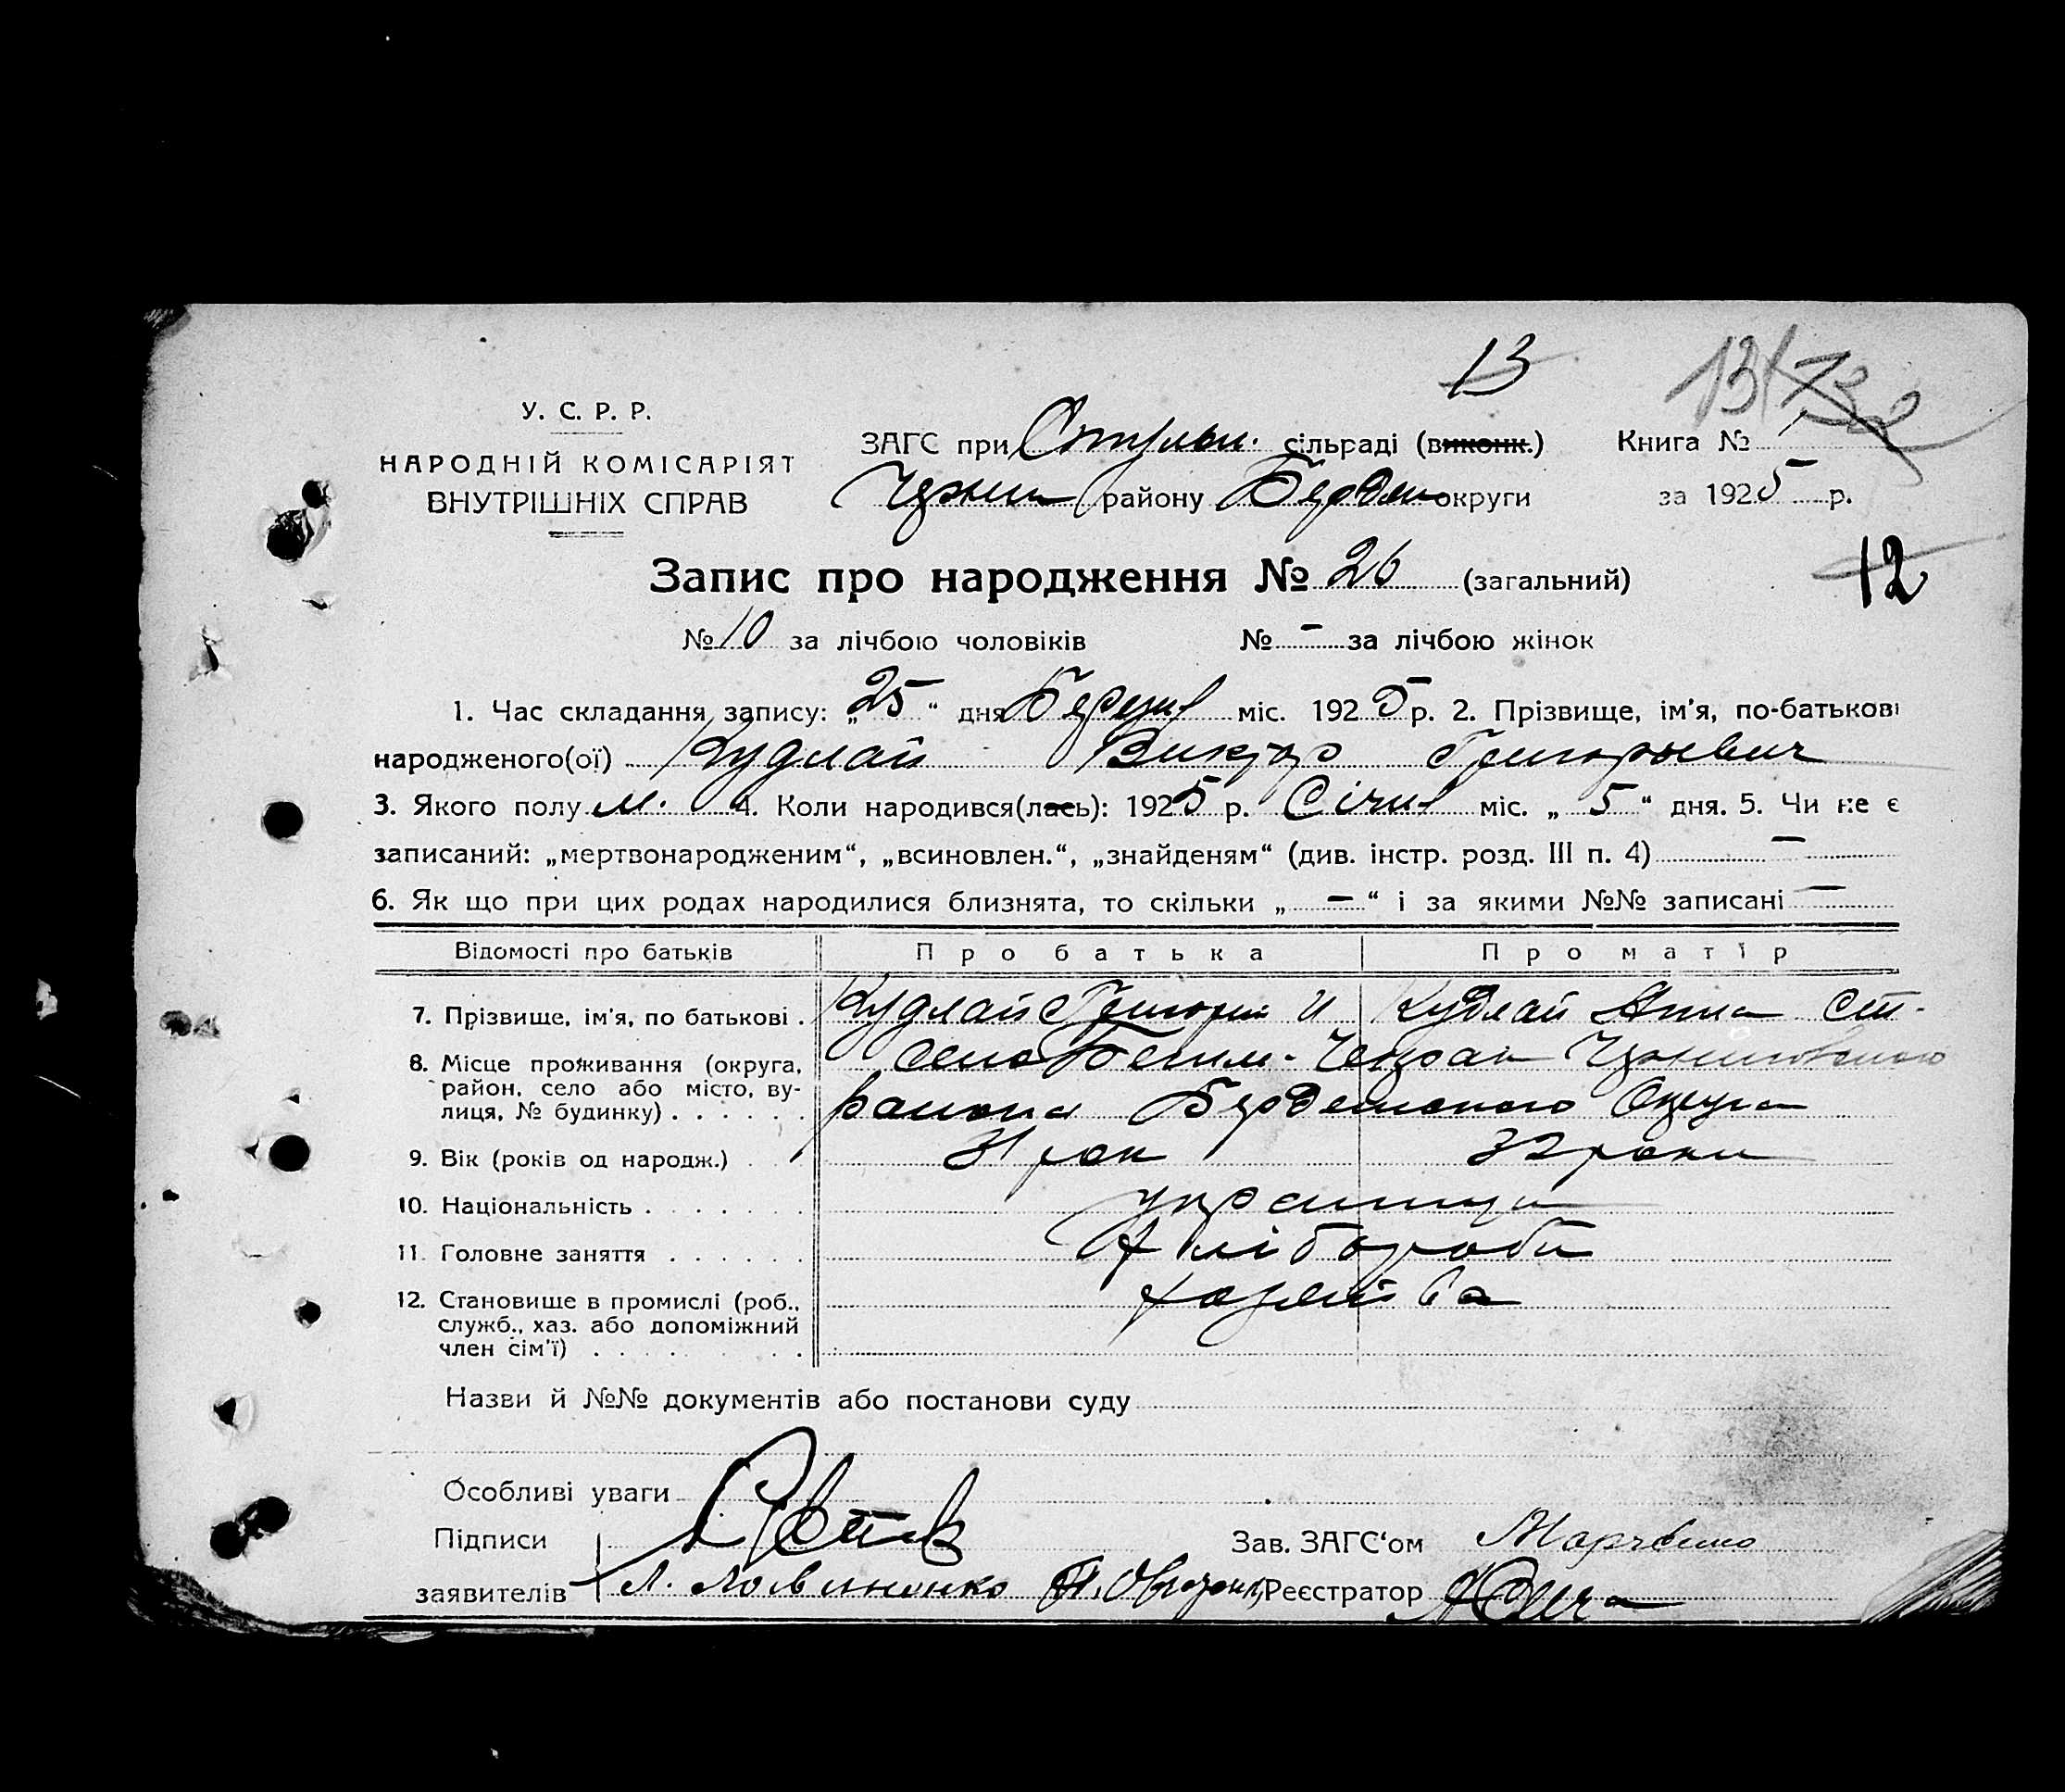 13
13
У. С. Р. Р.
НАРОДНІЙ КОМІСАРІЯТ
ВНУТРІШНІХ СПРАВ
ЗАГС при сільраді (виконк.) Книга №
району Бердян округи за 1925 р.
12
Запис про народження № 26 (загальний)
№ 10 за лічбою чоловіків № - за лічбою жінок
1. Час складання запису: „25“ дня Березня міс. 1925 р. 2. Прізвище, ім'я, по-батькові
народженого(ої) Кудлай Виктор Григорьевич
3. Якого полу м. 4. Коли народився(лась): 1925 р. Січня міс. „5“ дня. 5. Чи не є
записаний: „мертвонародженим“, „всиновлен.“, „знайденям“ (див. інстр. розд. III п. 4) -
6. Як що при цих родах народилися близнята, то скільки „-“ і за якими №№ записані -
Відомості про батьків Про батька Про матір
7. Прізвище, ім'я, по батькові . Кудлай Григорий И Кудлай Анна Ст.
8. Місце проживання (округа, село Чокрак Черниговского
район, село або місто, ву-
лиця, № будинку) . . . . . . района Бердянского Округа
9. Вік (років од народж.) . . . 31 рок 32 роки
10. Національність . . . . . . . українци
11. Головне заняття . . . . . . хлібороби
12. Становище в промислі (роб., хазяйва
служб., хаз. або допоміжний
член сім'ї) . . . . . . . . .
Назви й №№ документів або постанови суду
Особливі уваги
Підписи Зав. ЗАГС'ом
заявителів Л. Реєстратор